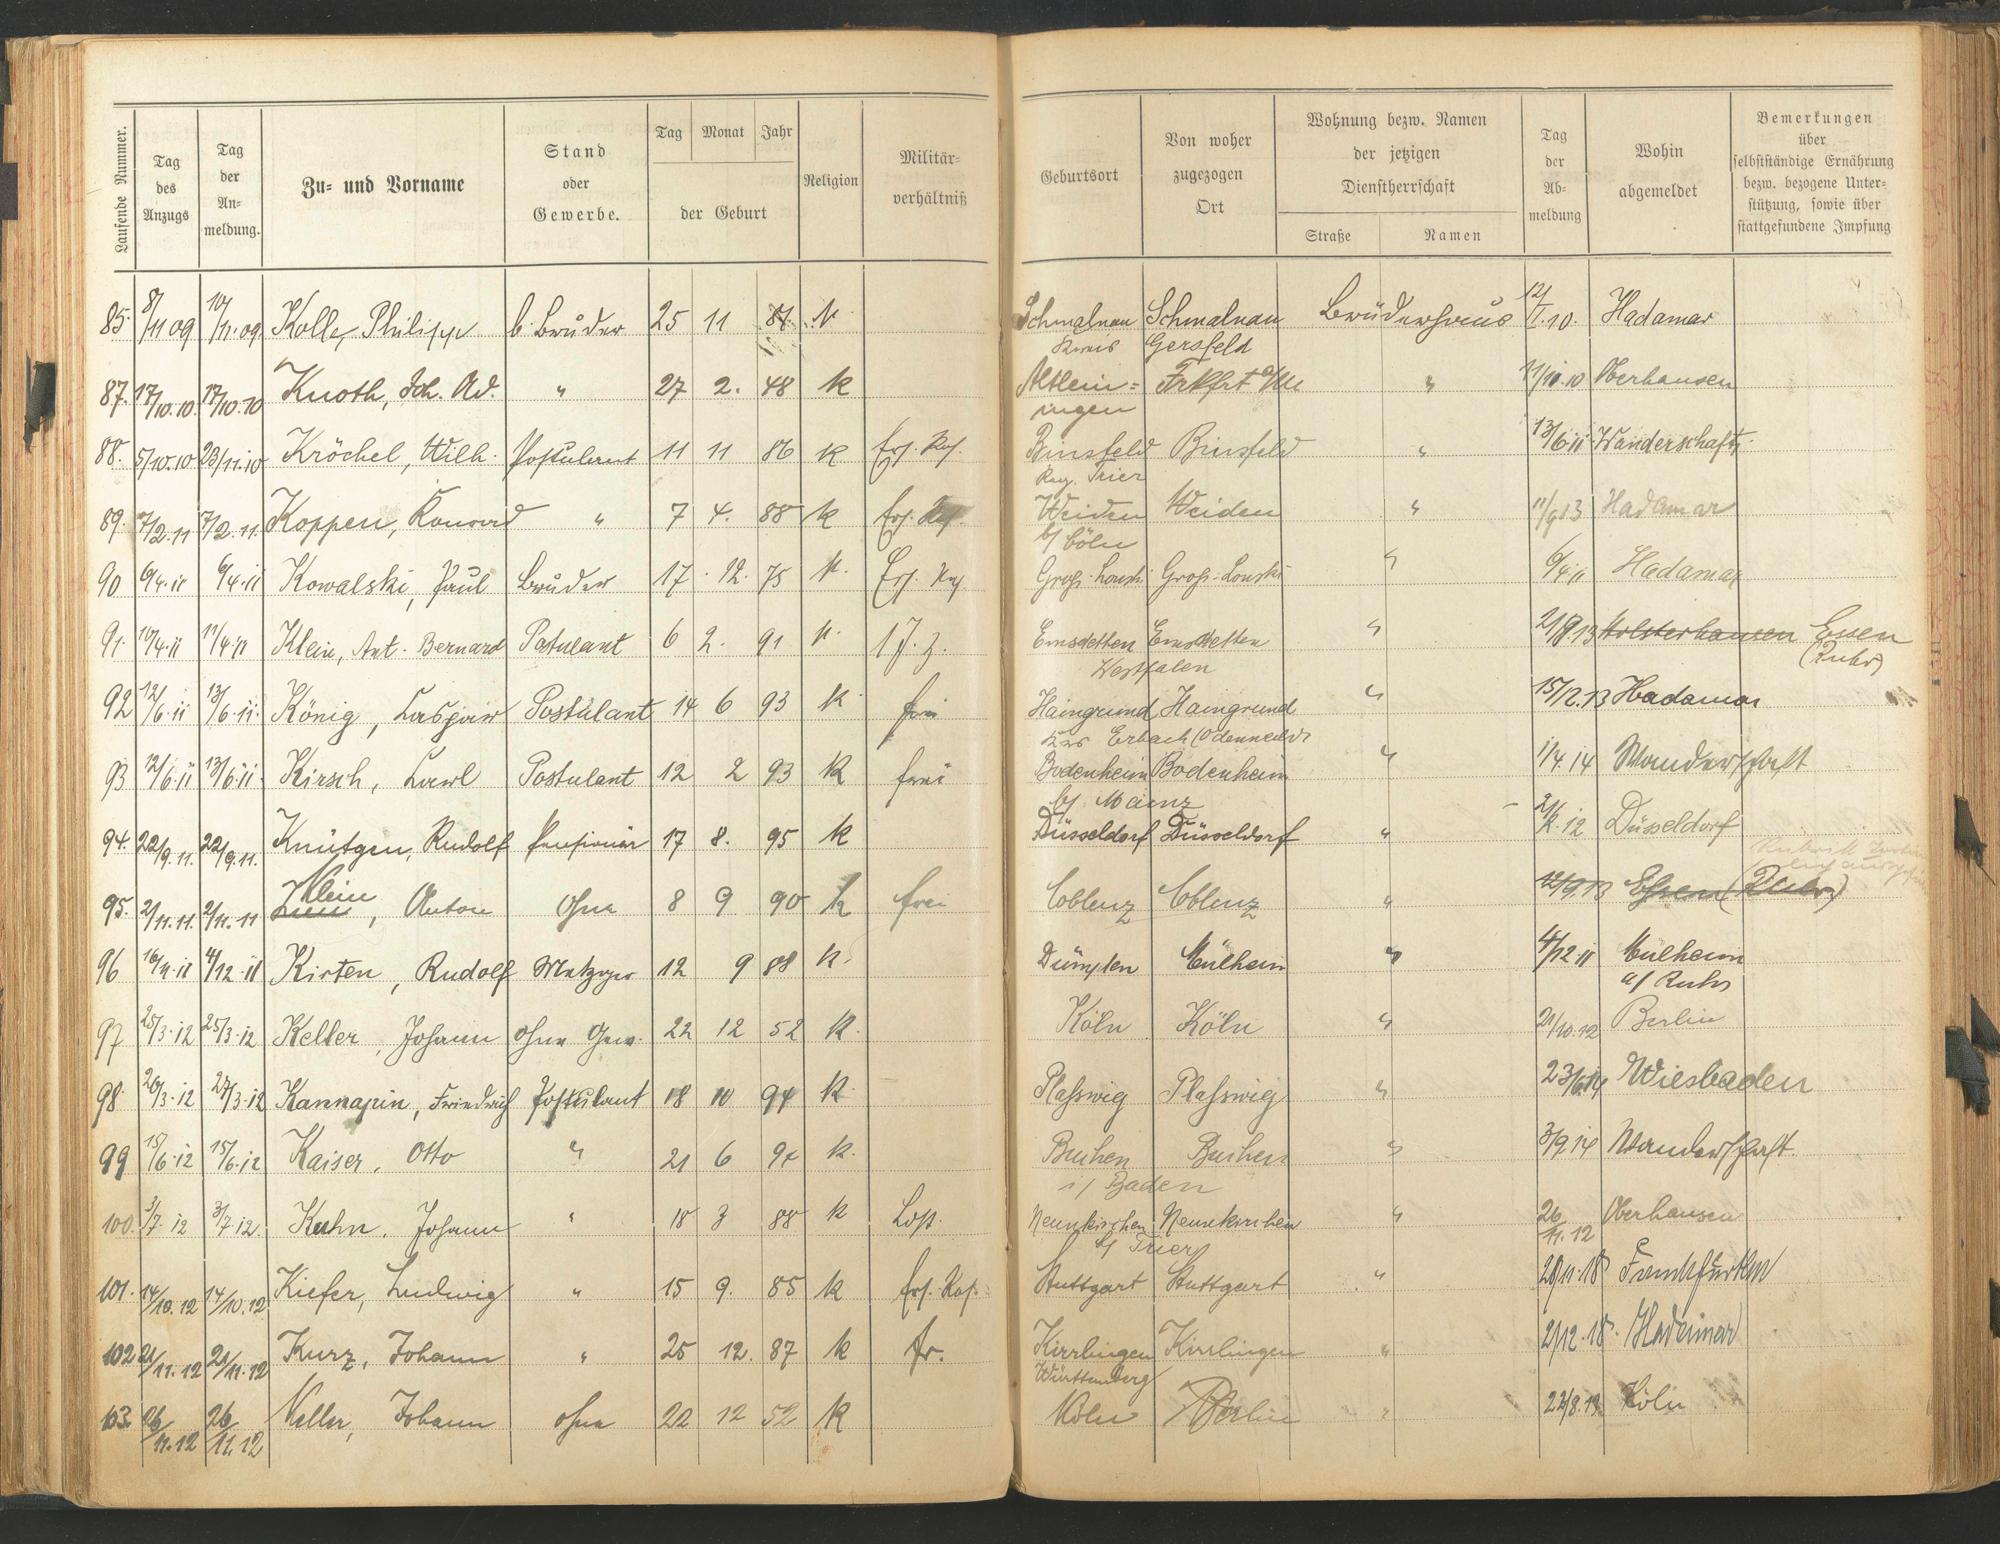 Laufende Nummer.
Tag des Anzugs
Tag der An= meldung.
Zu= und Vorname
Stand oder Gewerbe.
Tag Monat Jahr
der Geburt
Religion
Militär= verhältniß
Geburtsort
Von woher zugezogen Ort
Wohnung bezw. Namen der jetzigen Dienstherrschaft
Straße Namen
Tag der Ab= meldung
Wohin abgemeldet
Bemerkungen über selbstständige Ernährung bezw. bezogene Unter= stützung, sowie über stattgefundene Impfung
85. 8/11 09 10/11.09. Kolle, Philipp b. Bruder 25 11 k. Schmalnau Schmalnau Brüderhaus 12/1.10. Hadamar
Kreis Gersfeld
87. 17/10.10. 17/10.10 Knoth, Joh. Ad. " 27 2. 48 k Altlein= Frkfrt a/M " 11/10.10 Oberhausen
ingen
88. 5/10.10 23/11.10 Kröchel, Wilh. Postulant 11 11 86 k Ers. Res. Binsfeld Binsfeld " 13/6 11. Wanderschaft.
Reg. Trier
89. 7/2.11 7/2.11. Koppen, Konrad " 7 4. 88 k Ers. Res. Weiden Weiden " 11/9 13 Hadamar
b/ Cöln
90 6/4.11 6/4.11 Kowalski, Paul Bruder 17. 12. 75 k. Ers. Res Groß- Groß- " 6/4 11 Hadamar
91. 10/4.11 11/4.11 Klein, Ant. Bernard Postulant 6 2. 91 k. 1 J. z. Emsdetten Emsdetten " 21/8.13 Holsterhausen Essen
Westfalen (Ruhr)
92 12/6.11 13/6.11. König, Caspar Postulant 14 6 93 k frei Haingrund Haingrund " 15/12.13 Hadamar
Krs Erbach (Odenwald)
93 12/6.11 13/6.11. Kirsch, Carl Postulant 12 2 93 k frei Bodenheim Bodenheim " 1/4.14 Wanderschaft
b/ Mainz
94. 22/9.11. 22/9.11. Knütgen, Rudolf Pensionär 17 8. 95 k Düsseldorf Düsseldorf " Düsseldorf
95. 2/11.11. 2/11.11 Klein, Anton Ohne 8 9 90 k frei Coblenz Coblenz " 12/9.13 Essen (Ruhr)
96 16/11.11 4/12.11 Kirten, Rudolf Metzger 12 9 88 k. Dümpten Mülheim " 4/12.11 Mülheim
a/ Ruhr
97 25/3.12 25/3.12 Keller, Johann ohne Gew. 22 12 52 k. Köln Köln " 21/10.12 Berlin
98 26/3.12 27/3.12 Kannapin, Friedrich Postulant 18 10 94 k. Plaßwig Plaßwig " 23/6.14 Wiesbaden
99 15/6.12 15/6.12 Kaiser, Otto " 21 6 94 k. Buchen Buchen " 3/9.14 Wanderschaft.
i/ Baden
100. 3/7.12 3/7.12. Kuhn, Johann " 18 3 88 k Neunkirchen Neunkirchen " 26/11.12 Oberhausen
b/ Trier
101. 14/10.12 14/10.12 Kiefer, Ludwig " 15 9. 85 k Ers. Res. Stuttgart Stuttgart " 20/11.18 Frankfurt
102 21/11.12 21/11.12 Kurz, Johann " 25 12. 87 k fr. Kirrlingen Kirrlingen " 2/12.18. Hadamar
Württemberg
103. 26/11.12 26/11.12 Keller, Johann ohne 22 12 52 k Köln Berlin " 22/8.13 Köln